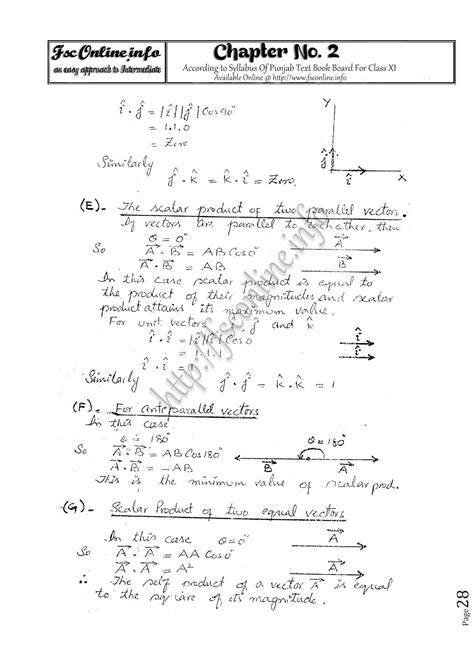 Fsc Online.info
an easy approach to Intermediate
Chapter No. 2
According to Syllabus Of Punjab Text Book Board For Class XI
Available Online @ http://www.fsconline.info
î . ĵ = |î||ĵ| Cos90°
= 1.1.0
= Zero
Similarly
ĵ . k̂ = k̂ . î = Zero.
Y
ĵ
î
X
(E)- The scalar product of two parallel vectors.
If vectors are parallel to each other, then
θ = 0°
So A⃗ . B⃗ = AB Cos0°
A⃗ . B⃗ = AB
A⃗
B⃗
In this case scalar product is equal to
the product of their magnitudes and scalar
product attains its maximum value.
For unit vectors î, ĵ and k̂
î . î = |î||î| Cos 0
= 1.1.1
î . î = 1
î
î
Similarly ĵ . ĵ = k̂ . k̂ = 1
(F)- For antiparallel vectors
In this case
θ = 180°
So A⃗ . B⃗ = AB Cos180°
A⃗ . B⃗ = -AB
θ = 180°
B⃗
A⃗
This is the minimum value of scalar prod.
(G)- Scalar Product of two equal vectors
In this case θ = 0°
So A⃗ . A⃗ = AA Cos0°
A⃗ . A⃗ = A²
A⃗
A⃗
∴ The self product of a vector A⃗ is equal
to the square of its magnitude.
http://fsconline.info
Page 28